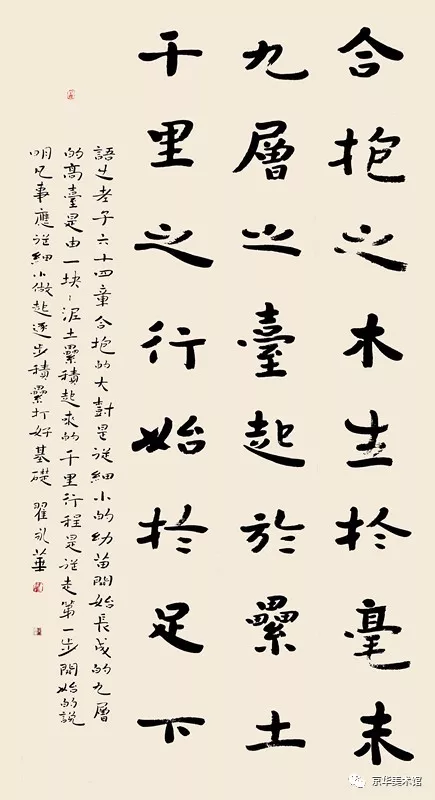 合抱之木生於毫末
九層之臺起於累土
千里之行始於足下
語出老子六十四章合抱的大樹是從細小的幼苗開始長成的九層
的高臺是由一塊塊泥土累積起來的千里行程是從走第一步開始的說
明凡事應從細小做起逐步積累打好基礎 翟永華
京华美术馆